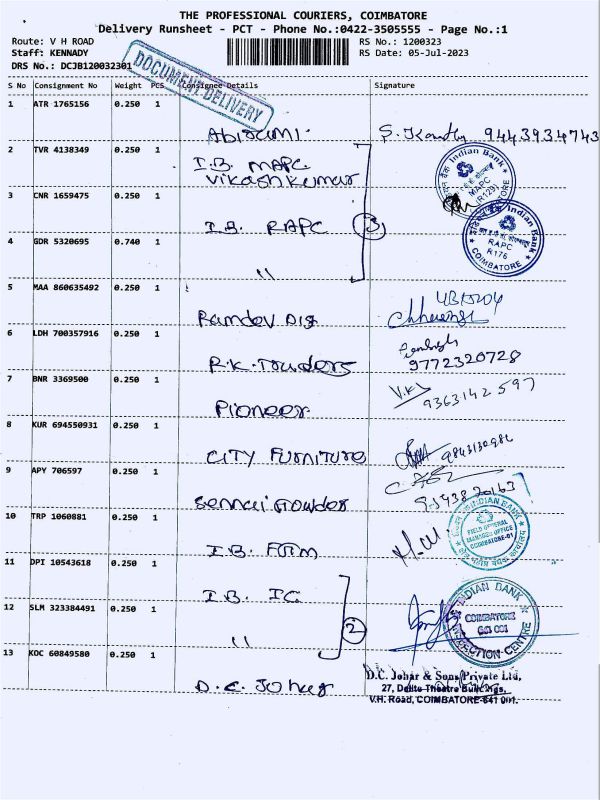 THE PROFESSIONAL COURIERS, COIMBATORE
Delivery Runsheet - PCT - Phone No.:0422-3505555 - Page No.:1
Route: V H ROAD RS No.: 1200323
Staff: KENNADY RS Date: 05-Jul-2023
DRS No.: DCJB120032301
DOCUMENT DELIVERY
S No Consignment No Weight PCS Consignee Details Signature
1 ATR 1765156 0.250 1
Abirami. 9443934743
2 TVR 4138349 0.250 1
I.B. MAPC
Vikashkumar
Indian Bank
MAPC
(R129)
COIMBATORE
3 CNR 1659475 0.250 1
I.B. RAPC 3
Indian Bank
RAPC
R176
COIMBATORE
4 GDR 5320695 0.740 1
"
5 MAA 860635492 0.250 1
Ramdev Dis
6 LDH 700357916 0.250 1
R.K. Traders 9772320728
7 BNR 3369500 0.250 1
Pioneer 9363142597
8 KUR 694550931 0.250 1
CITY FURNITURE
9 APY 706597 0.250 1
10 TRP 1060881 0.250 1
I.B. FGM H.M.
INDIAN BANK
FIELD GENERAL
MANAGER OFFICE
COIMBATORE-01
11 DPI 10543618 0.250 1
I.B. IC
12 SLM 323384491 0.250 1
" 2
INDIAN BANK
COIMBATORE
INSPECTION CENTRE
13 KOC 60849580 0.250 1
D.C. Johar
D.C. Johar & Sons Private Ltd,
27, Delite Theatre Buildings,
V.H. Road, COIMBATORE-641 001.